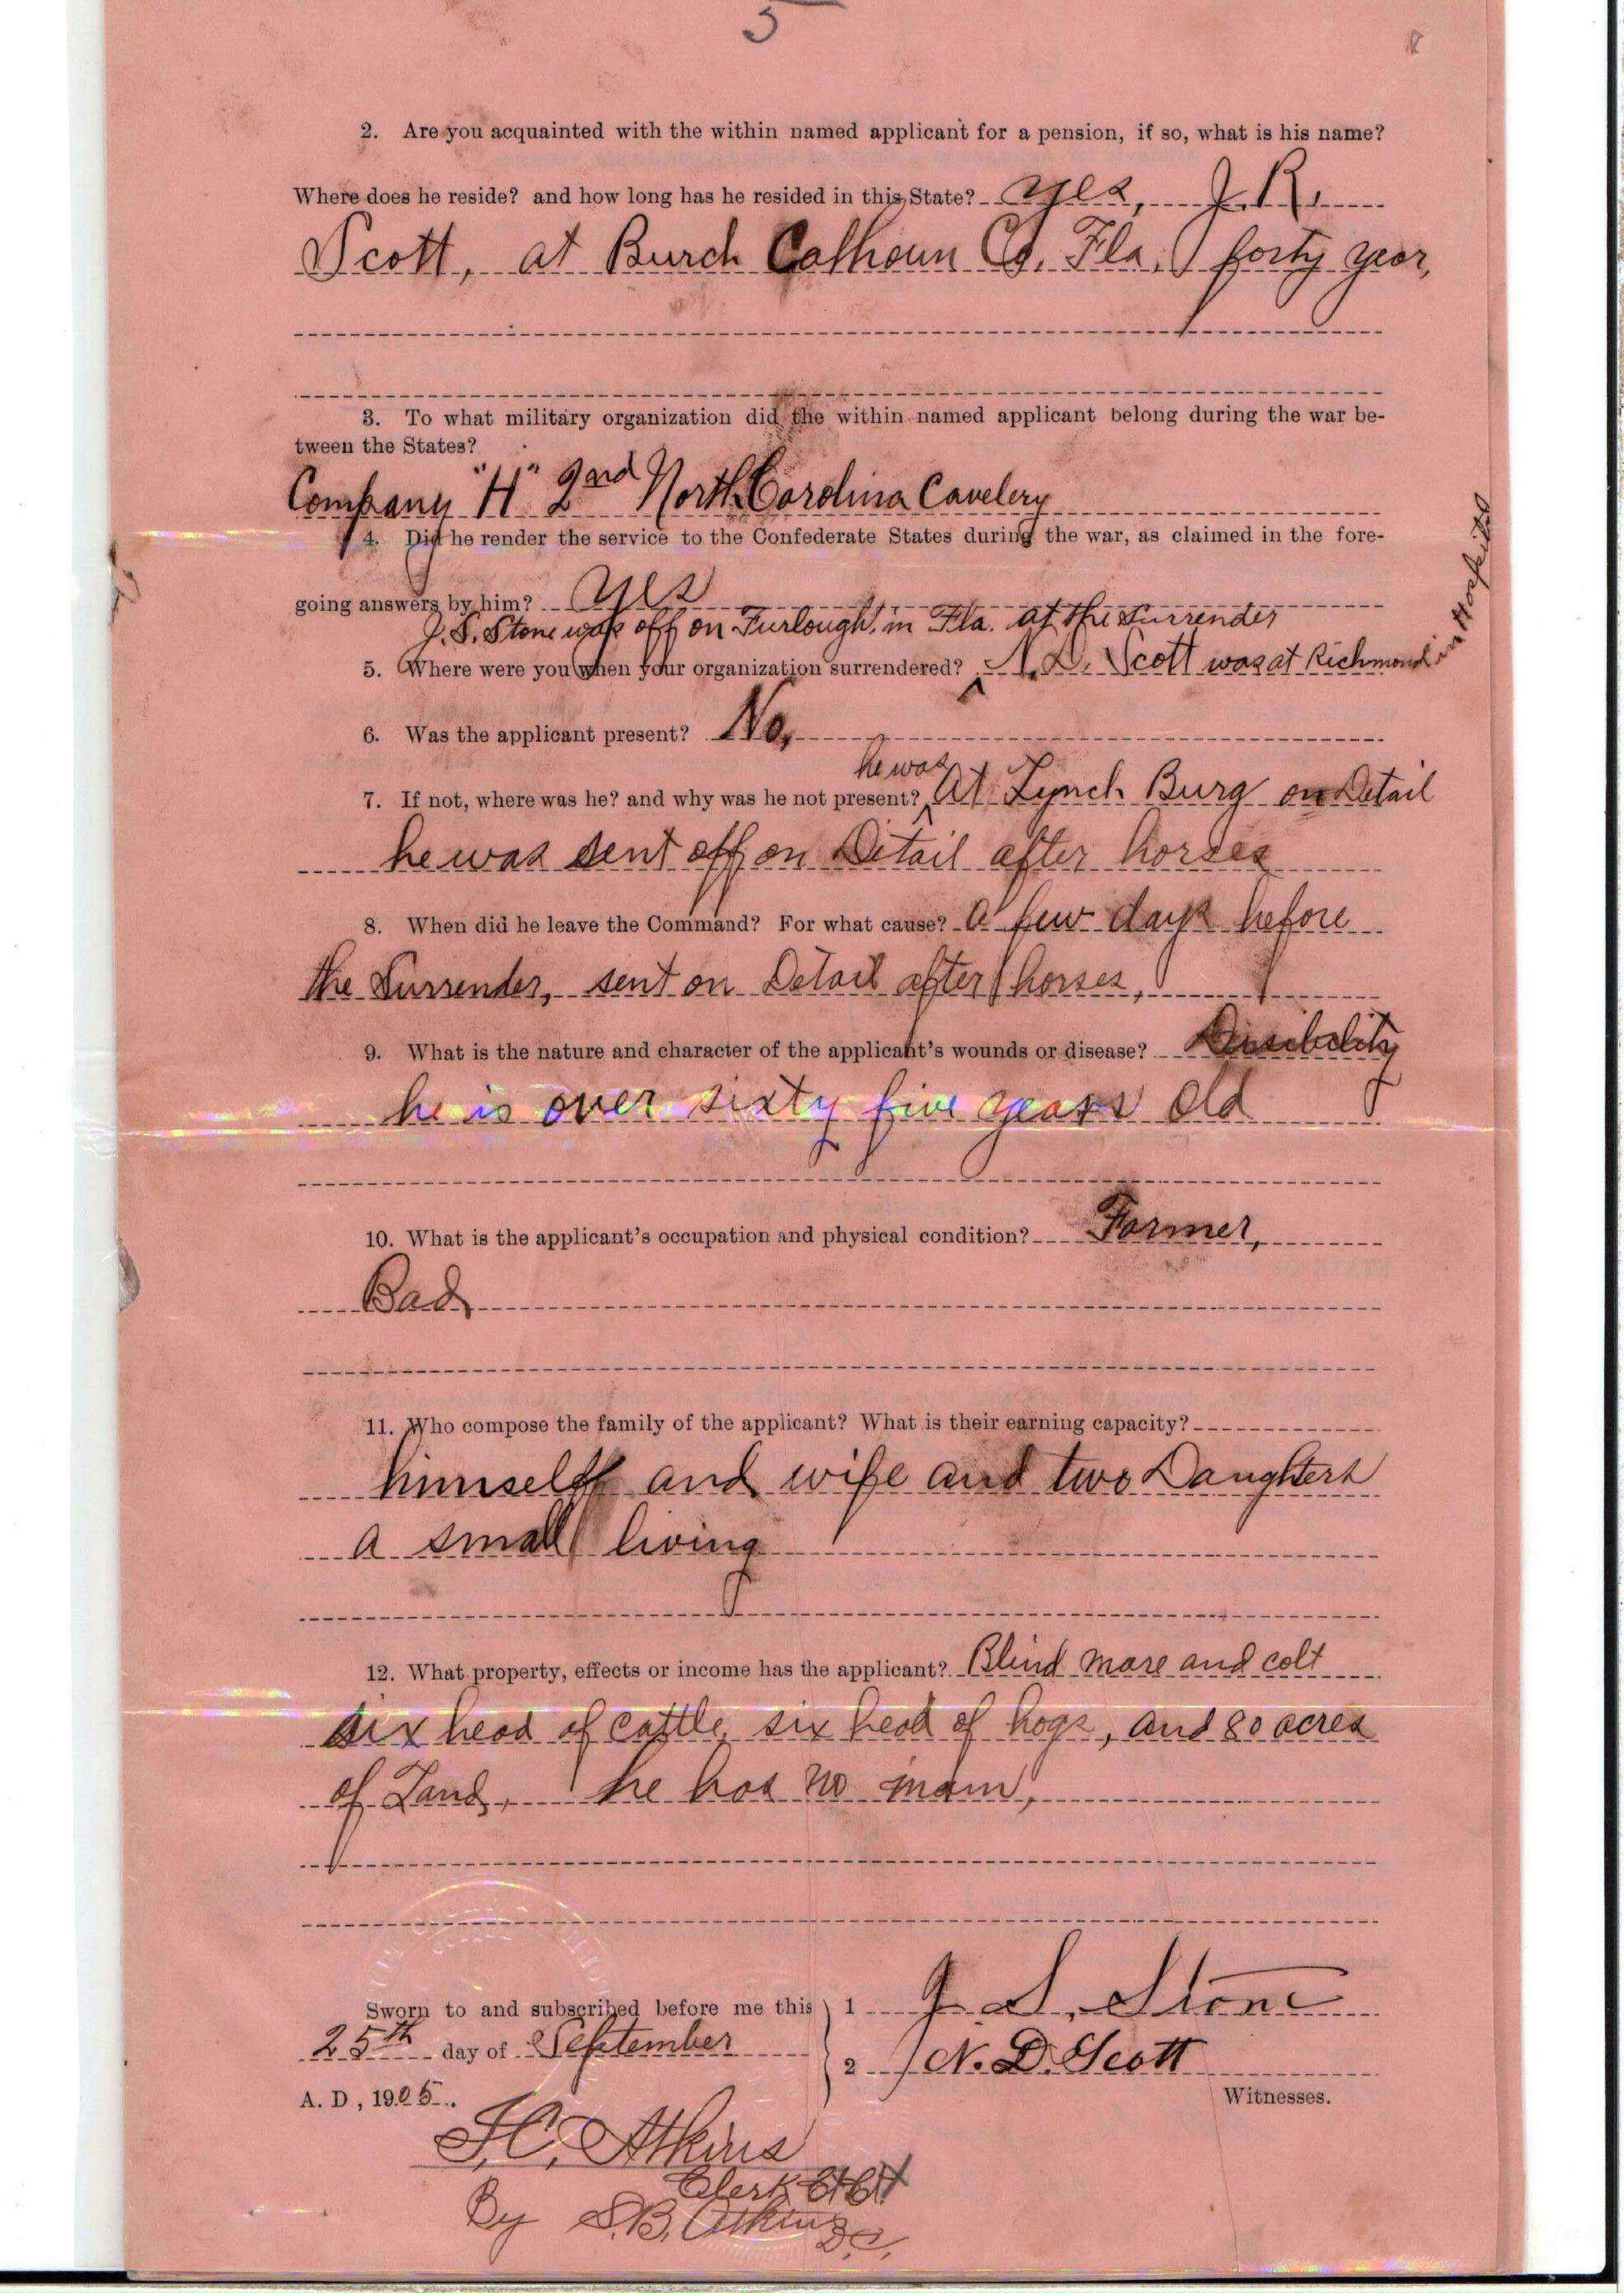 5
8
2. Are you acquainted with the within named applicant for a pension, if so, what is his name?
Where does he reside? and how long has he resided in this State? yes, J. R.
Scott, at Burch Calhoun Co, Fla, forty year,
3. To what military organization did the within named applicant belong during the war be-
tween the States?
Company "H" 2nd North Carolina Cavelery
4. Did he render the service to the Confederate States during the war, as claimed in the fore-
going answers by him? yes
J. S. Stone was off on Furlough, in Fla. at the surrender
5. Where were you when your organization surrendered? N. D. Scott was at Richmond in Hospital
6. Was the applicant present? No,
he was
7. If not, where was he? and why was he not present? At Lynch Burg on Detail
he was sent off on Detail after horses
8. When did he leave the Command? For what cause? a few days before
the Surrender, sent on Detail after horses,
9. What is the nature and character of the applicant's wounds or disease?
he is over sixty five years old
10. What is the applicant's occupation and physical condition? Farmer,
Bad,
11. Who compose the family of the applicant? What is their earning capacity?
himself and wife and two Daughters
a small living
12. What property, effects or income has the applicant? Blind mare and colt
six head of cattle, six head of hogs, and 80 acres
of Land, he has no
Sworn to and subscribed before me this 1 J. S. Stone
25th day of September
2 N. D. Scott
A. D, 1905.
Witnesses.
Atkins
Clerk
By S. B. Atkins
D.C.